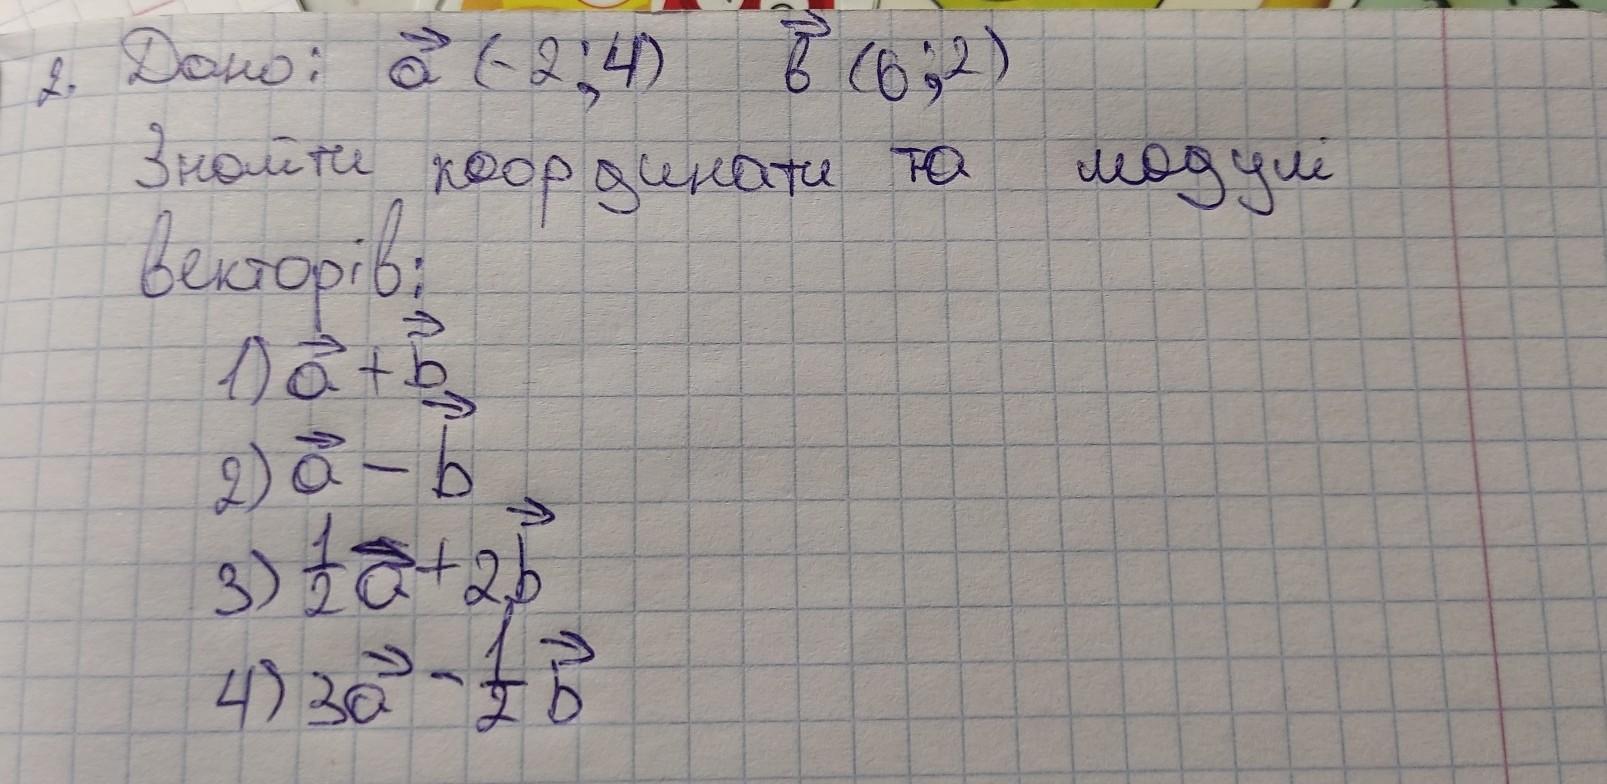 2. Дано: a⃗ (-2;4) b⃗ (6;2)
Знайти координати та модулі
векторів:
1) a⃗ + b⃗
2) a⃗ - b⃗
3) 1/2 a⃗ + 2b⃗
4) 3a⃗ - 1/2 b⃗